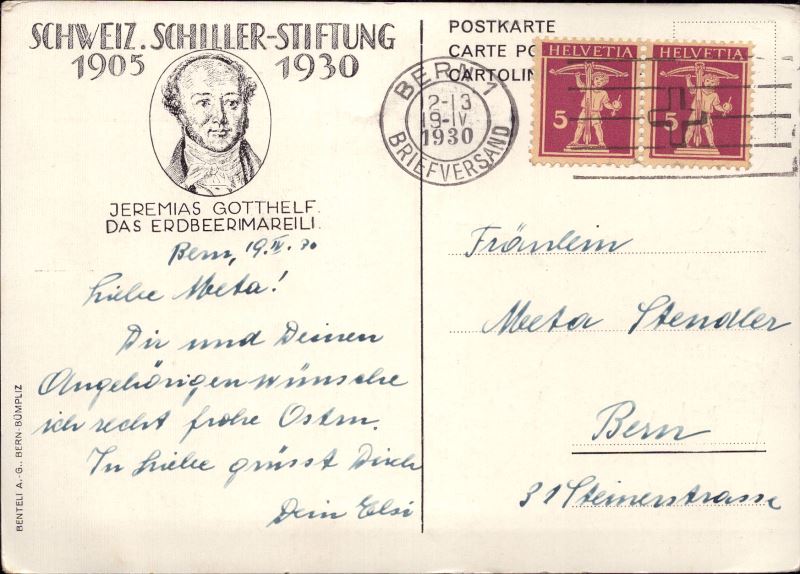 SCHWEIZ. SCHILLER-STIFTUNG
1905 1930
JEREMIAS GOTTHELF.
DAS ERDBEERIMAREILI.
Bern, 19.IV.30
Liebe Meta!
Dir und Deinen
Angehörigen wünsche
ich recht frohe Ostern.
In Liebe grüsst Dich
Dein Elsi
BENTELI A.-G., BERN-BÜMPLIZ
POSTKARTE
CARTE PO
CARTOLIN
BERN 1
12-13
19-IV
1930
BRIEFVERSAND
HELVETIA
5
HELVETIA
5
Fräulein
Meta Stendler
Bern
31 Steinerstrasse